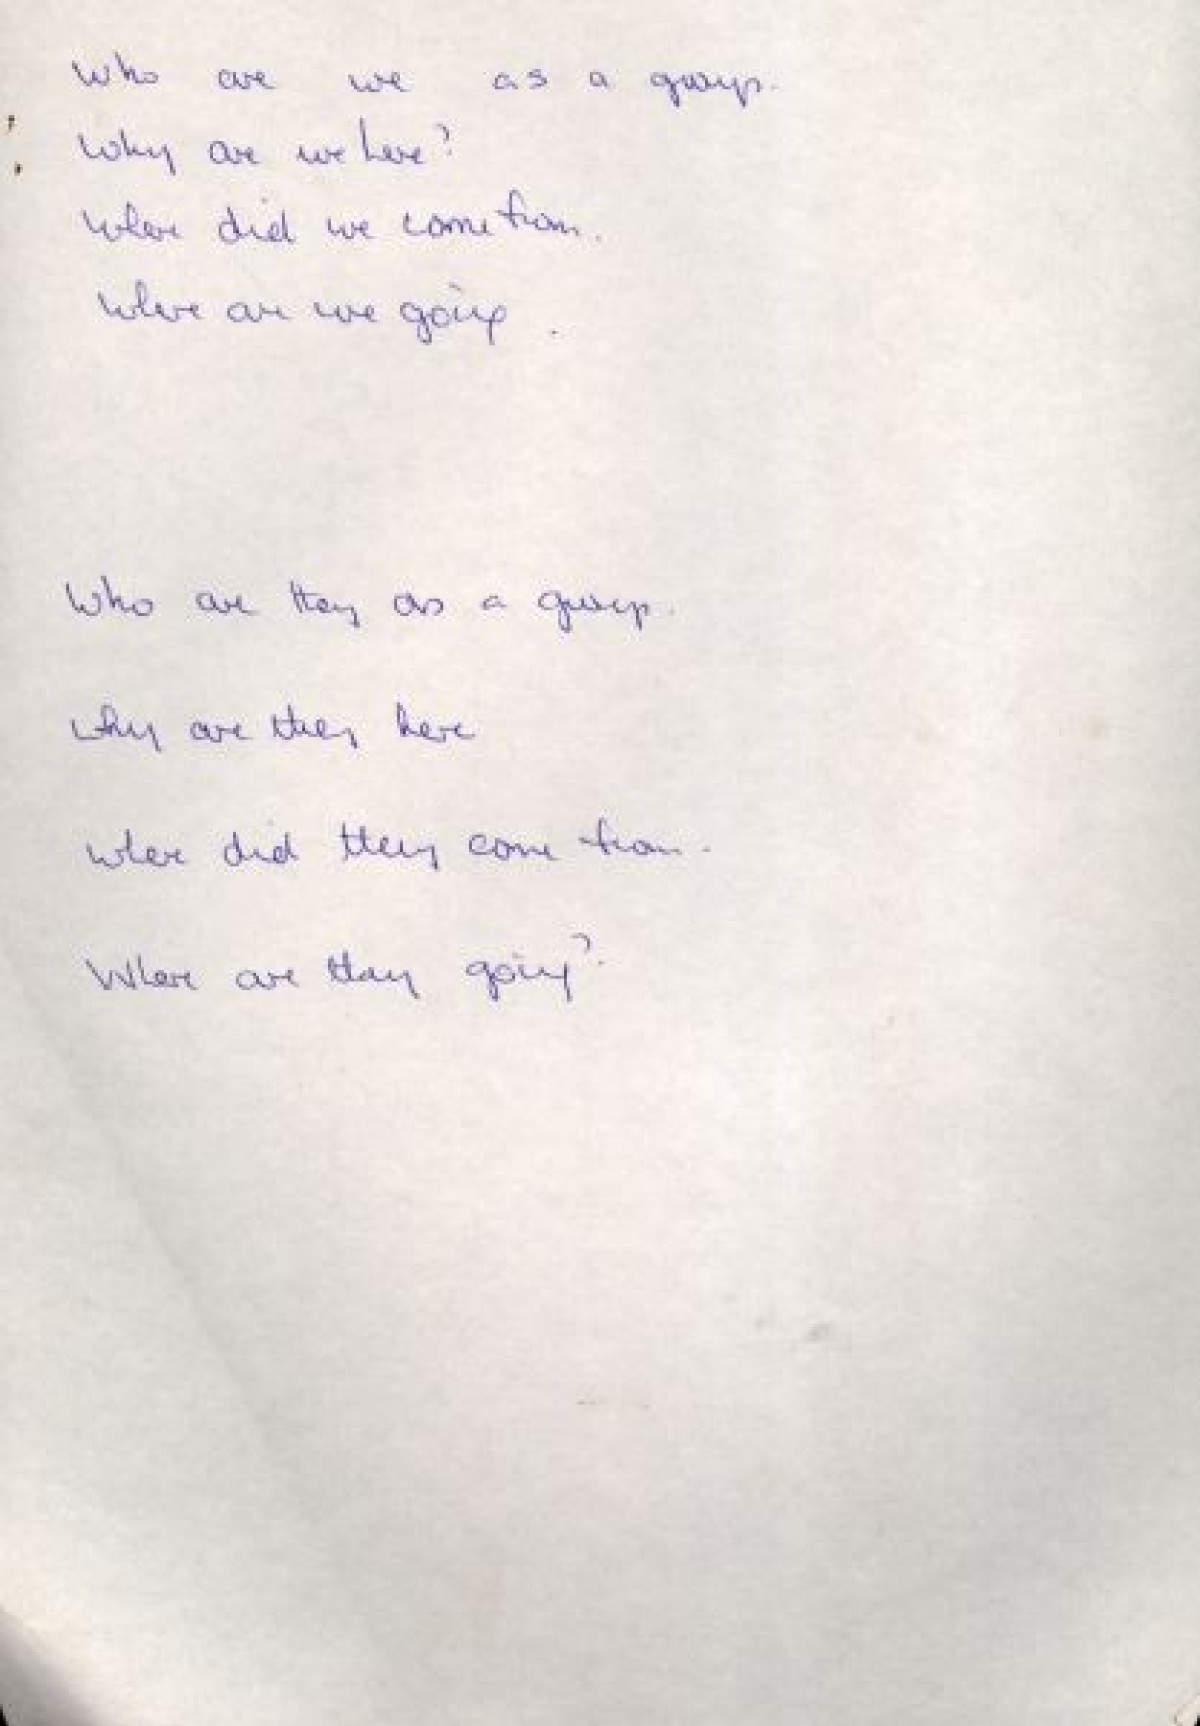 Who are we as a group.
Why are we here?
Where did we come from.
Where are we going.
Who are they as a group.
Why are they here
where did they come from.
Where are they going?